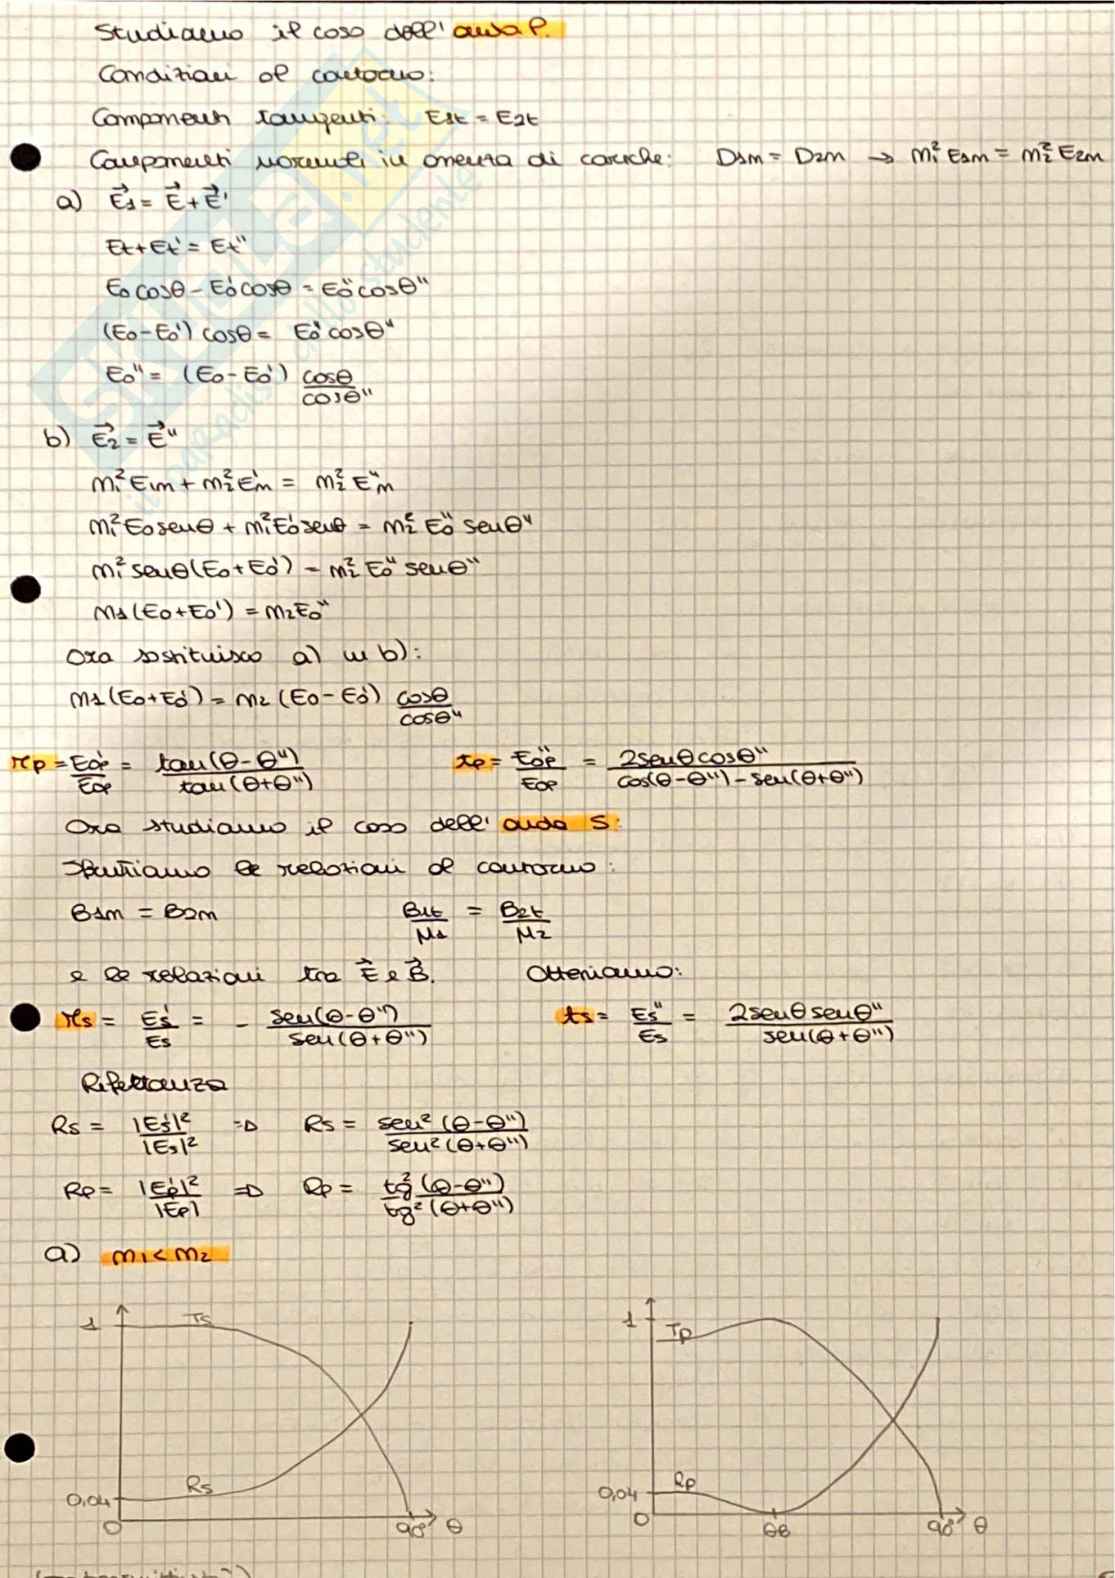 Studiamo il caso dell'onda P.
Condizioni al contorno:
Componenti tangenti: E1t = E2t
Componenti normali in assenza di cariche: D1n = D2n → n₁² E1n = n₂² E2n
a) E⃗1 = E⃗ + E⃗'
Et + Et' = Et''
E0 cosθ - E0' cosθ = E0'' cosθ''
(E0 - E0') cosθ = E0'' cosθ''
E0'' = (E0 - E0') cosθ / cosθ''
b) E⃗2 = E⃗''
n₁² E1n + n₂² E'n = n₂² E''n
n₁² E0 senθ + n₁² E0' senθ = n₂² E0'' senθ''
n₁² senθ (E0 + E0') = n₂² E0'' senθ''
n1 (E0 + E0') = n2 E0''
Ora sostituisco a) in b):
n1 (E0 + E0') = n2 (E0 - E0') cosθ / cosθ''
rp = E0p' / E0p = tan(θ - θ'') / tan(θ + θ'') tp = E0p'' / E0p = 2senθcosθ'' / cos(θ - θ'') - sen(θ + θ'')
Ora studiamo il caso dell'onda S:
Sfruttiamo le relazioni al contorno:
B1n = B2n B1t / μ1 = B2t / μ2
e le relazioni tra E⃗ e B⃗. Otteniamo:
rs = Es' / Es = - sen(θ - θ'') / sen(θ + θ'') ts = Es'' / Es = 2senθ senθ'' / sen(θ + θ'')
Riflettanza
Rs = |Es'|² / |Es|² ⇒ Rs = sen²(θ - θ'') / sen²(θ + θ'')
Rp = |Ep'|² / |Ep| ⇒ Rp = tg²(θ - θ'') / tg²(θ + θ'')
a) n1 < n2
1 Ts 1 Tp
0,04 Rs 0,04 Rp
0 90° θ 0 θB 90° θ